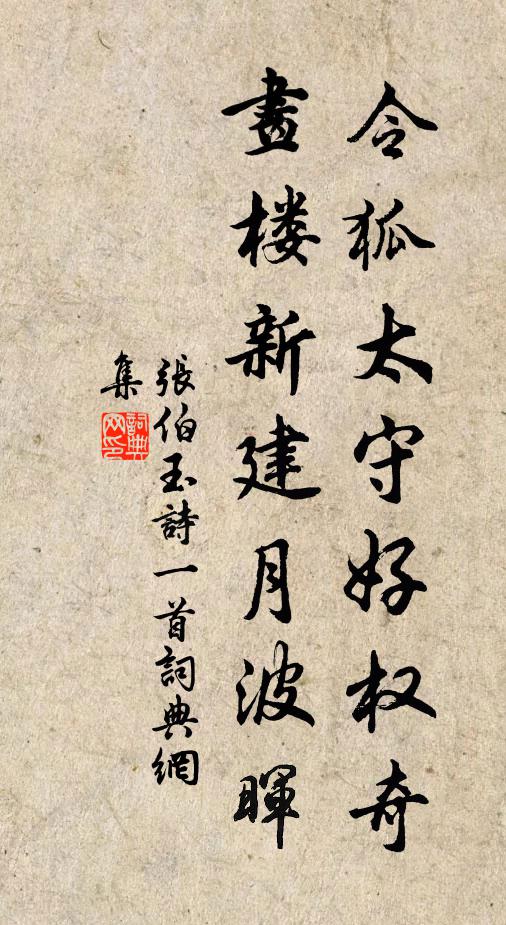 令狐太守好权奇
畫楼新建月波暉
張伯玉詩一首詞典網
集
詞典
网印